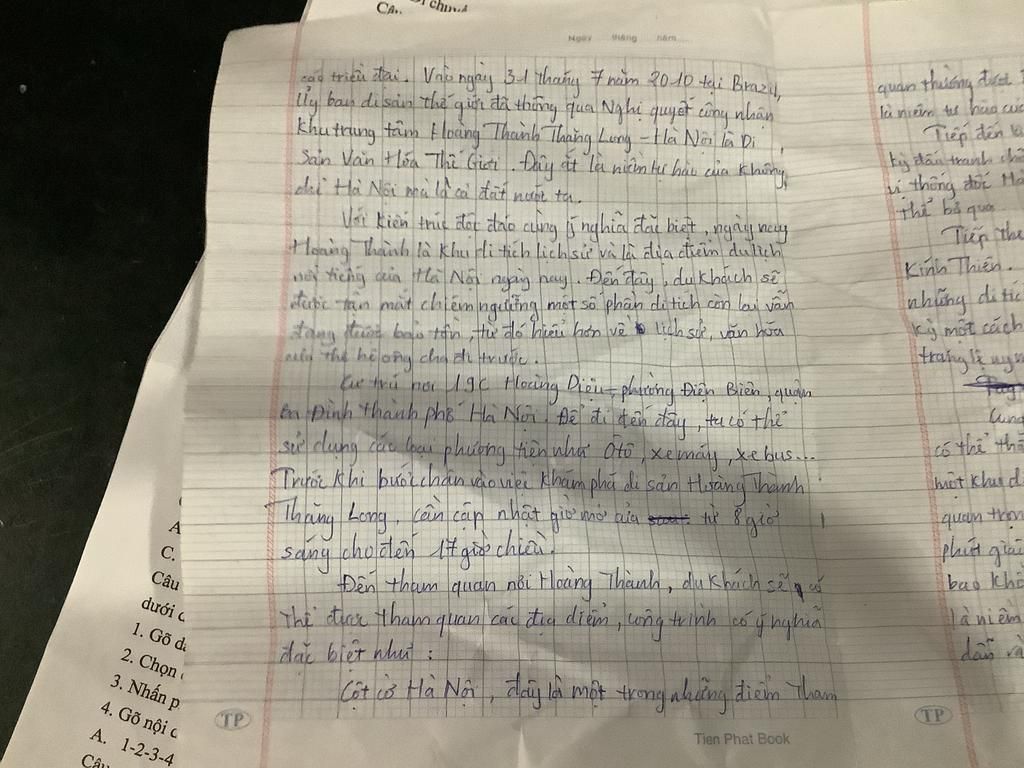 Câu
Ngày tháng năm
các triều đại. Vào ngày 31 tháng 7 năm 2010 tại Brazil,
Ủy ban di sản thế giới đã thông qua Nghị quyết công nhận
khu trung tâm Hoàng Thành Thăng Long - Hà Nội là Di
Sản Văn Hóa Thế Giới. Đây là niềm tự hào của không
chỉ Hà Nội mà là cả đất nước ta.
Với kiến trúc độc đáo cùng ý nghĩa đặc biệt, ngày nay
Hoàng Thành là khu di tích lịch sử và là địa điểm du lịch
nổi tiếng của Hà Nội ngày nay. Đến đây, du khách sẽ
được tận mắt chiêm ngưỡng một số phần di tích còn lại vẫn
đang được bảo tồn, từ đó hiểu hơn về lịch sử, văn hóa
của thế hệ ông cha đi trước.
Cư trú nơi 19C Hoàng Diệu, phường Điện Biên, quận
Ba Đình thành phố Hà Nội. Để đi đến đây, ta có thể
sử dụng các loại phương tiện như Ôtô, xe máy, xe bus...
Trước khi bước chân vào việc khám phá di sản Hoàng Thành
Thăng Long, cần cập nhật giờ mở cửa từ 8 giờ
sáng cho đến 17 giờ chiều.
Đến tham quan nơi Hoàng Thành, du khách sẽ có
thể được tham quan các địa điểm, công trình có ý nghĩa
đặc biệt như:
Cột cờ Hà Nội, đây là một trong những điểm tham
TP
Tien Phat Book
quan thường được
là niềm tự hào của
Tiếp đến là
kỳ đấu tranh
vì thống đốc
thể bỏ qua
Tiếp the
Kính Thiên.
những di tíc
kỳ một cách
trang lệ uy
Cung
có thể thă
một khu d
quan trọn
phút giâ
bao khô
là niềm
dẫn và
TP
A
C.
Câu
dưới c
1. Gõ dấ
2. Chọn
3. Nhấn p
4. Gõ nội d
A. 1-2-3-4
Câu